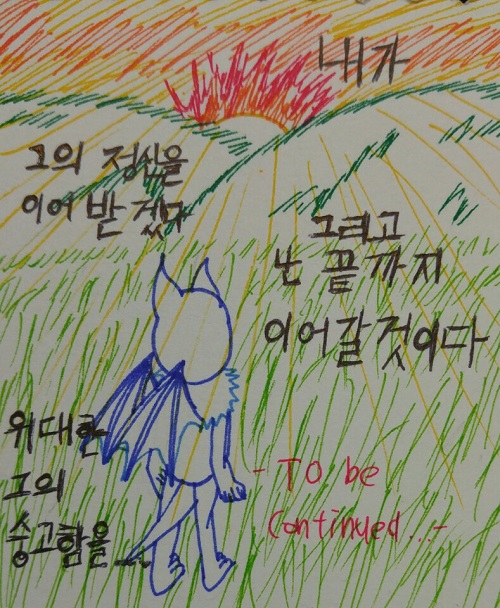 내가
그의 정신을
이어 받겠다
그리고
난 끝까지
이어갈것이다
위대한
그의
숭고함을...
- To be
Continued...-